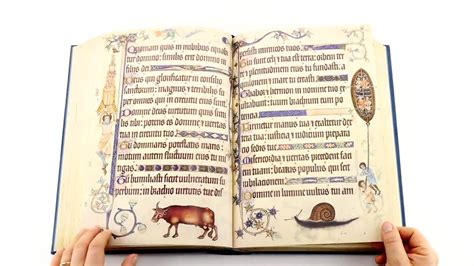 Quoniam quis in nubibus equabi
tur domino similis erit in filiis dei
Deus qui glorificatur in consilio
sanctorum magnus et terribilis su
per omnes qui in circuitu eius sunt
Domine deus virtutum quis similis
tibi potens es domine et veritas tu
a in circuitu tuo
Tu dominaris potestatis maris
motum autem fluctuum eius tu mitigas
Tu humiliasti sicut vulneratum su
perbum in brachio virtutis tue dis
persisti inimicos tuos
Tui sunt celi et tua est terra orbem
terre et plenitudinem eius tu fundasti a
quilonem et mare tu creasti
Thabor et hermon in nomine tuo
exultabunt tuum brachium cum po
tentia
Firmetur manus tua et exaltetur dex
tera tua iusticia et iudicium prepara
cio sedis tue
Misericordia et veritas precedent
faciem tuam beatus populus qui scit
iubilationem
Domine in lumine vultus tui am